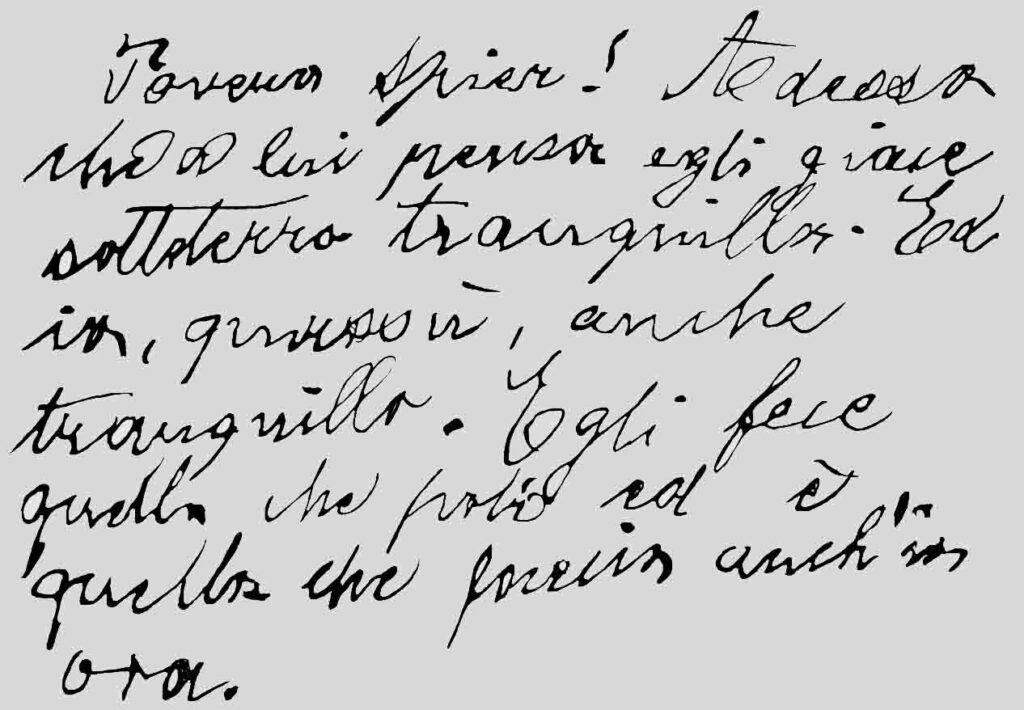 Povero Spier! Adesso
che a lui penso egli giace
sotterra tranquillo. Ed
io, quassù, anche
tranquillo. Egli fece
quello che potè ed è
quello che faccio anch'io
ora.